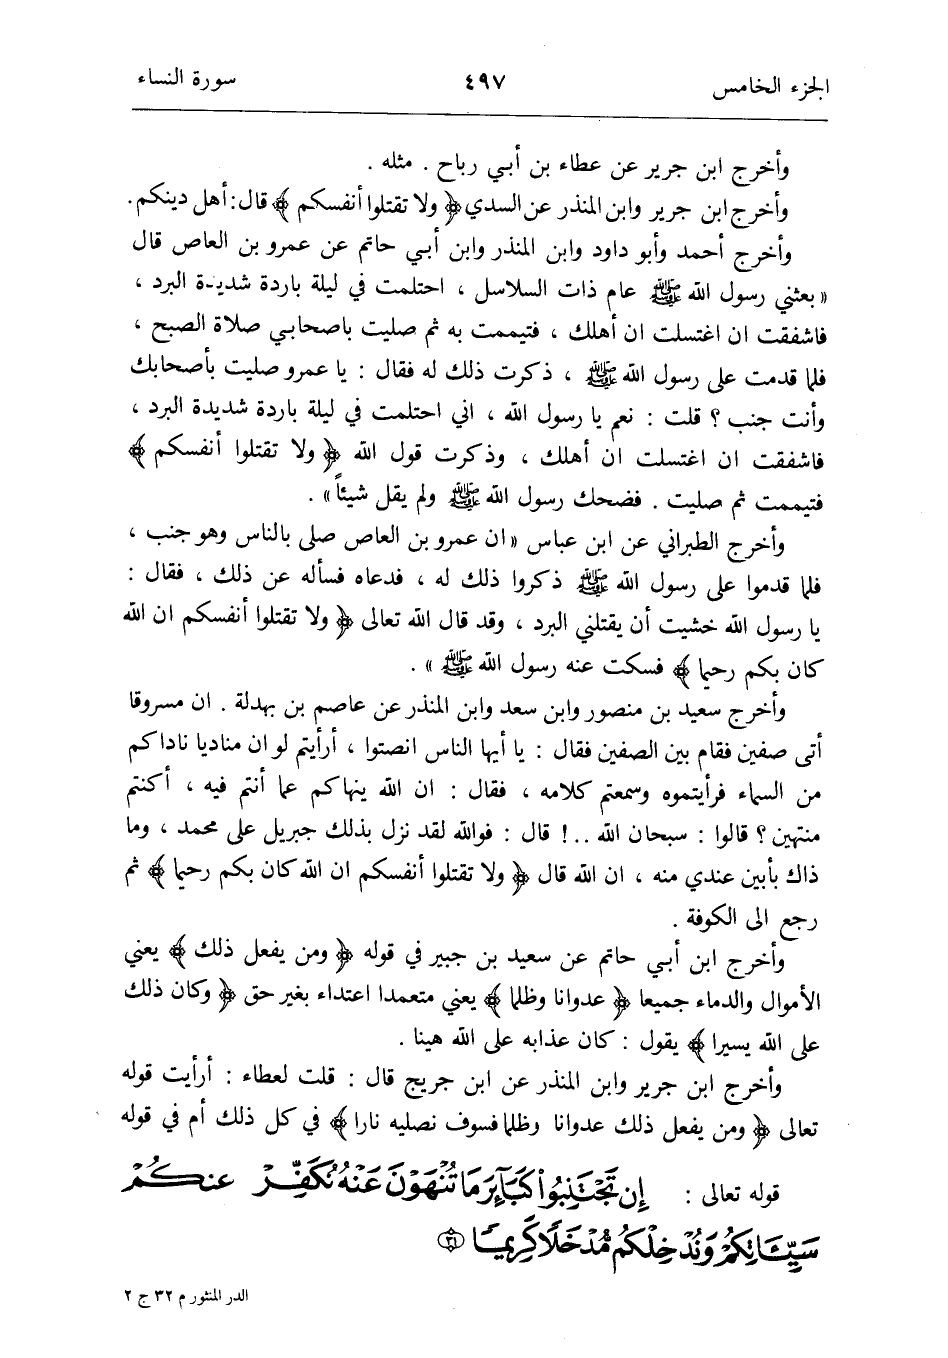 الجزء الخامس ٤٩٧ سورة النساء
وأخرج ابن جرير عن عطاء بن أبي رباح . مثله .
وأخرج ابن جرير وابن المنذر عن السدي ﴿ ولا تقتلوا أنفسكم ﴾ قال : أهل دينكم .
وأخرج أحمد وأبو داود وابن المنذر وابن أبي حاتم عن عمرو بن العاص قال
« بعثني رسول الله ﷺ عام ذات السلاسل ، احتلمت في ليلة باردة شديدة البرد ،
فاشفقت ان اغتسلت ان أهلك ، فتيممت به ثم صليت باصحابي صلاة الصبح ،
فلما قدمت على رسول الله ﷺ ، ذكرت ذلك له فقال : يا عمرو صليت بأصحابك
وأنت جنب ؟ قلت : نعم يا رسول الله ، اني احتلمت في ليلة باردة شديدة البرد ،
فاشفقت ان اغتسلت ان أهلك ، وذكرت قول الله ﴿ ولا تقتلوا أنفسكم ﴾
فتيممت ثم صليت . فضحك رسول الله ﷺ ولم يقل شيئاً » .
وأخرج الطبراني عن ابن عباس « ان عمرو بن العاص صلى بالناس وهو جنب ،
فلما قدموا على رسول الله ﷺ ذكروا ذلك له ، فدعاه فسأله عن ذلك ، فقال :
يا رسول الله خشيت أن يقتلني البرد ، وقد قال الله تعالى ﴿ ولا تقتلوا أنفسكم ان الله
كان بكم رحيما ﴾ فسكت عنه رسول الله ﷺ » .
وأخرج سعيد بن منصور وابن سعد وابن المنذر عن عاصم بن بهدلة . ان مسروقا
أتى صفين فقام بين الصفين فقال : يا أيها الناس انصتوا ، أرأيتم لو ان مناديا ناداكم
من السماء فرأيتموه وسمعتم كلامه ، فقال : ان الله ينهاكم عما أنتم فيه ، أكنتم
منتهين ؟ قالوا : سبحان الله ..! قال : فوالله لقد نزل بذلك جبريل على محمد ، وما
ذاك بأبين عندي منه ، ان الله قال ﴿ ولا تقتلوا أنفسكم ان الله كان بكم رحيما ﴾ ثم
رجع الى الكوفة .
وأخرج ابن أبي حاتم عن سعيد بن جبير في قوله ﴿ ومن يفعل ذلك ﴾ يعني
الأموال والدماء جميعا ﴿ عدوانا وظلما ﴾ يعني متعمدا اعتداء بغير حق ﴿ وكان ذلك
على الله يسيرا ﴾ يقول : كان عذابه على الله هينا .
وأخرج ابن جرير وابن المنذر عن ابن جريج قال : قلت لعطاء : أرأيت قوله
تعالى ﴿ ومن يفعل ذلك عدوانا وظلما فسوف نصليه نارا ﴾ في كل ذلك أم في قوله
قوله تعالى : إِن تَجْتَنِبُوا۟ كَبَآئِرَ مَا تُنْهَوْنَ عَنْهُ نُكَفِّرْ عَنكُمْ
سَيِّـَٔاتِكُمْ وَنُدْخِلْكُم مُّدْخَلًا كَرِيمًا ﴿٣١﴾
الدر المنثور م ٣٢ ج ٢